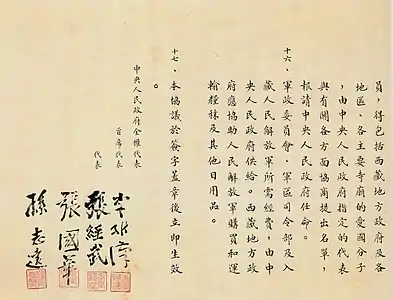 員，得包括西藏地方政府及各
地區、各主要寺廟的愛國分子
，由中央人民政府指定的代表
與有關各方面協商提出名單，
報請中央人民政府任命。
十六、軍政委員會、軍區司令部及入
藏人民解放軍所需經費，由中
央人民政府供給。西藏地方政
府應協助人民解放軍購買和運
輸糧秣及其他日用品。
十七、本協議於簽字蓋章後立即生效
。
中央人民政府全權代表
首席代表
李維漢
代表
張經武
張國華
孫志遠